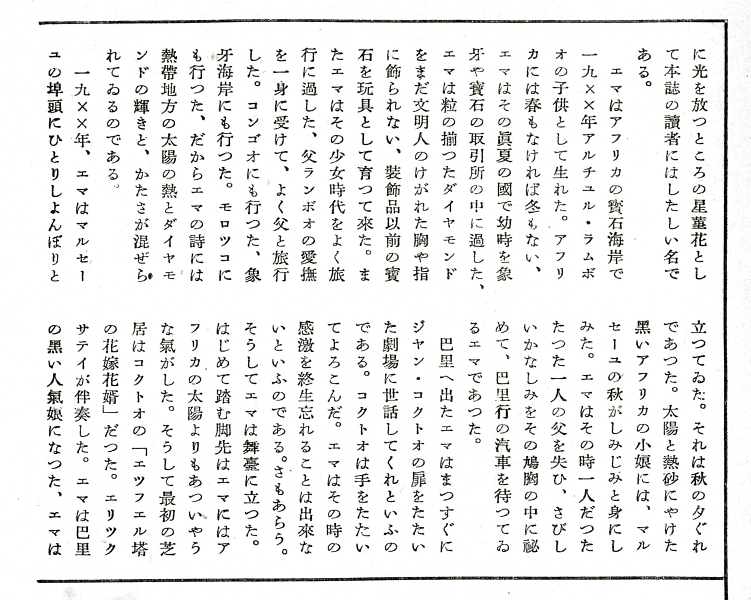 に光を放つところの星菫花とし
て本誌の讀者にはしたしい名で
ある。
エマはアフリカの寳石海岸で
一九××年アルチュル・ラムボ
オの子供として生れた。アフリ
カには春もなければ冬もない、
エマはその眞夏の國で幼時を象
牙や寳石の取引所の中に過した、
エマは粒の揃つたダイヤモンド
をまだ文明人のけがれた胸や指
に飾られない、裝飾品以前の寳
石を玩具として育つて來た。ま
たエマはその少女時代をよく旅
行に過した、父ランボオの愛撫
を一身に受けて、よく父と旅行
した。コンゴオにも行つた、象
牙海岸にも行つた。モロツコに
も行つた、だからエマの詩には
熱帶地方の太陽の熱とダイヤモ
ンドの輝きと、かたさが混ぜら
れてゐるのである。
一九××年、エマはマルセー
ユの埠頭にひとりしよんぼりと
立つてゐた。それは秋の夕ぐれ
であつた。太陽と熱砂にやけた
黑いアフリカの小娘には、マル
セーユの秋がしみじみと身にし
みた。エマはその時一人だつた
たつた一人の父を失ひ、さびし
いかなしみをその鳩胸の中に祕
めて、巴里行の汽車を待つてゐ
るエマであつた。
巴里へ出たエマはまつすぐに
ジヤン・コクトオの扉をたたい
た劇場に世話してくれといふの
である。コクトオは手をたたい
てよろこんだ。エマはその時の
感激を終生忘れることは出來な
いといふのである。さもあらう。
そうしてエマは舞臺に立つた。
はじめて踏む脚先はエマにはア
フリカの太陽よりもあついやう
な氣がした。そうして最初の芝
居はコクトオの「エツフエル塔
の花嫁花婿」だつた。エリツク
サテイが伴奏した。エマは巴里
の黑い人氣娘になつた、エマは